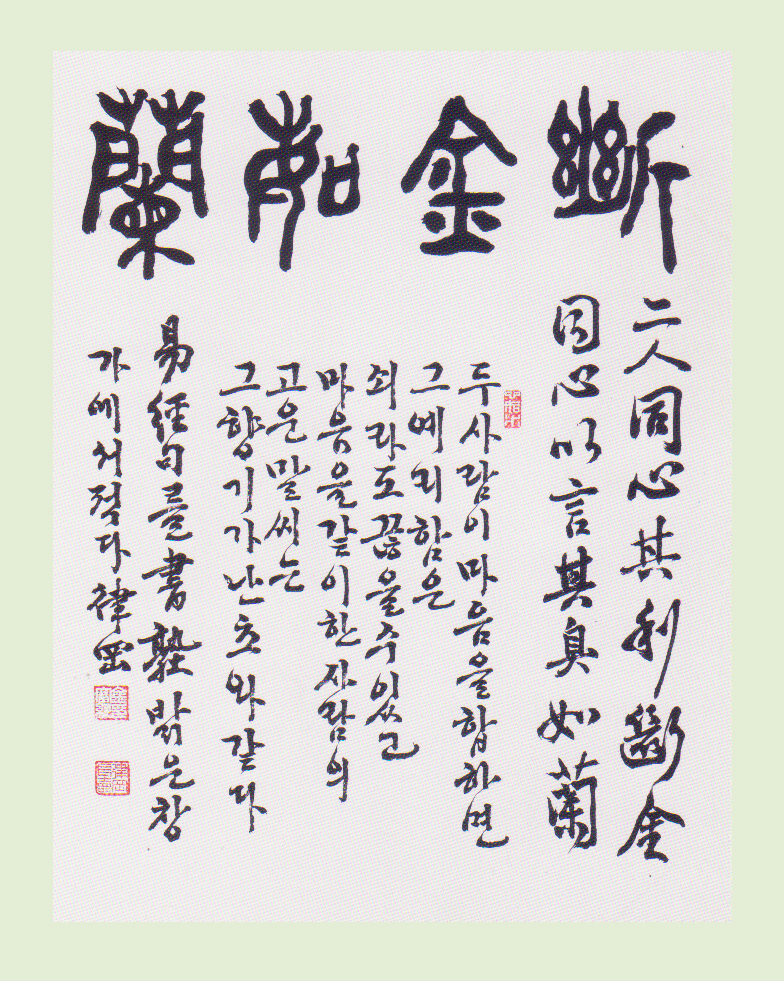 斷金如蘭
二人同心其利斷金
同心以言其臭如蘭
두사람이마음을합하면
그예리함은
쇠라도끊을수있고
마음을같이한사람의
고운말씨는
그향기가난초와같다
易經句를書塾밝은창
가에서적다律岡